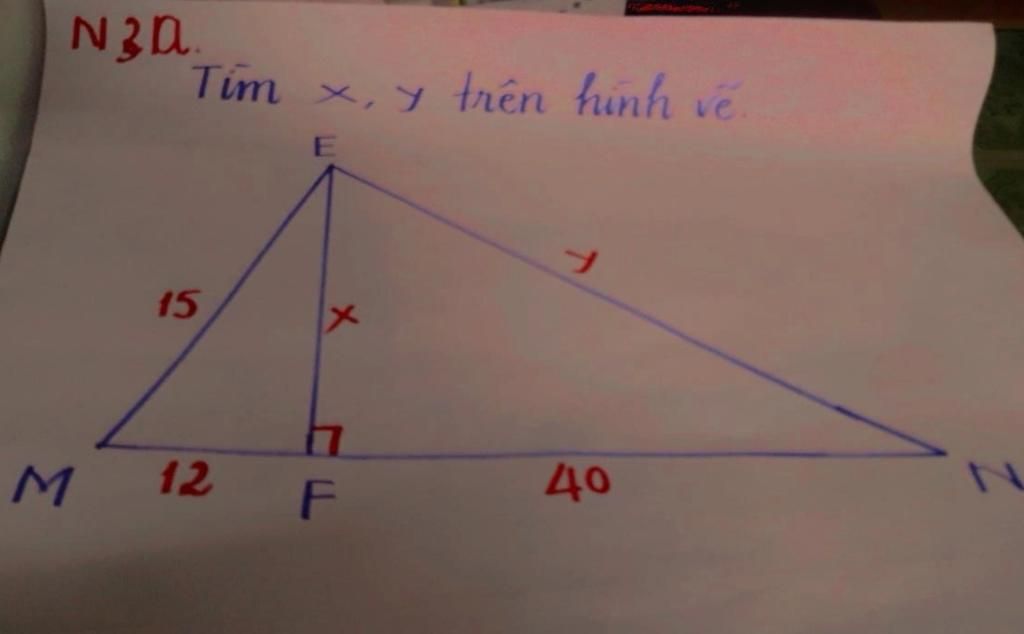 N3a.
Tìm x, y trên hình vẽ.
E
y
15
x
M
12
F
40
N